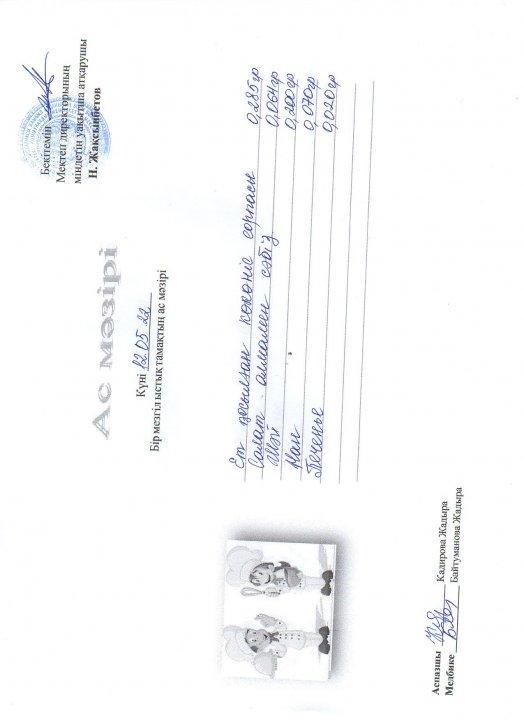 Бекітемін
Мектеп директорының
міндетін уақытша атқарушы
Н. Жақсыибетов
Ас мәзірі
Күні 12.05 22
Бір мезгіл ыстық тамақтың ас мәзірі
Ет қосылған көкөніс сорпасы 0,285гр
Салат алмамен сәбіз 0,064гр
Шәй 0,200гр
Нан 0,070гр
Печенье 0,020гр
Аспазшы Кадирова Жадыра
Медбике Байтуманова Жадыра